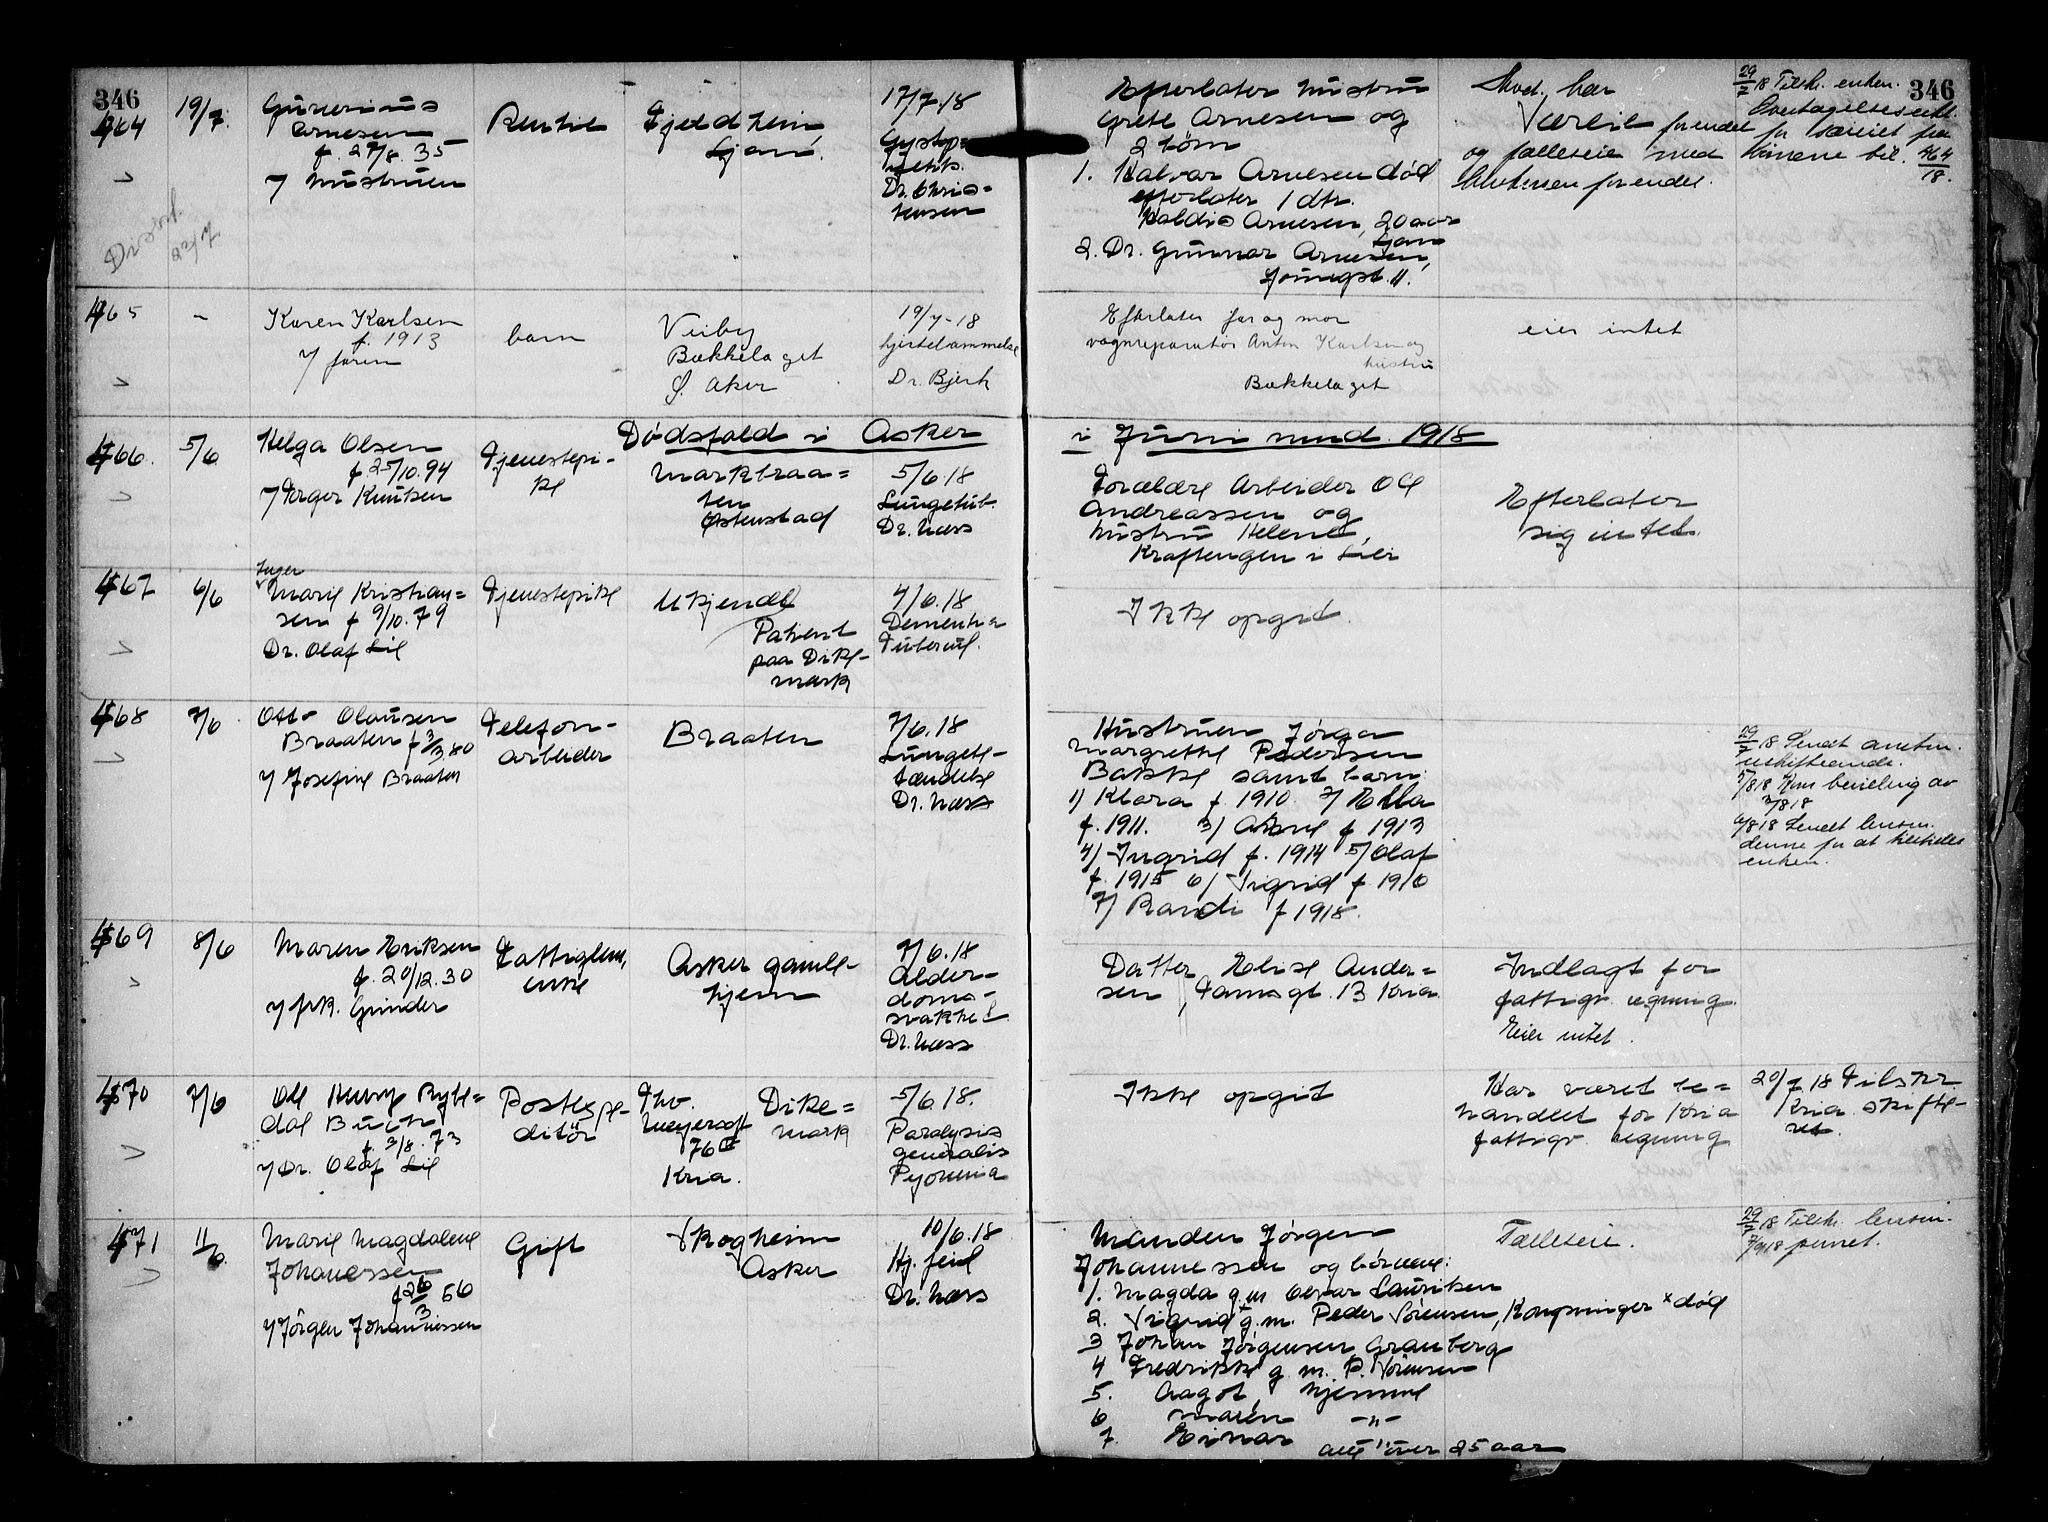 346
464
19/7.
Gunerius
Arnesen
f. 27/8. 35
v/ hustruen
Rentie
Fjeldheim,
Ljan.
17/7.18
Dr. Chris=
tensen
Disset.
22/7
Efterlater hustru
Grete Arnesen og
2 børn
1. Halvar Arnesen død
efterlater 1 dtr.
Haldis Arnesen, 20 aar
Ljan
2. Dr. Gunnar Arnesen,
Youngsgt. 11.
Avd. har
særeie forendel
og fælleseie med
forendel.
346
29/7 18 Tilsk. enken.
Overtagelseserkl.
for særeiet fra
arvingene bil. 464/18.
465
-
Karen Karlsen
f. 1913
v/ faren
barn
Veiby
Bækkelaget
Ø. Aker
19/7-18
hjertelammelse
Dr. Bjerk
Efterlater far og mor
vognreparatør Anton Karlsen og
hustru
Bækkelaget
eier intet
Dødsfald i Asker i Juni mnd. 1918
466.
5/6
Helga Olsen
f 25/10.94
v/ Torger Knutsen
Tjenestepi-
ke
Markbraa=
ten
Østenstad
5/6.18
Lungetub.
Dr. Næss
Forældre Arbeider Ole
Andreassen og
hustru Helene,
Kraftengen i Lier
Efterlater
sig intet.
467
6/6
Inger
Marie Kristian=
sen f 9/10.79
Dr. Olaf Lie
Tjenestepike
Ukjendt
Patient
paa Dike-
mark
4/6.18
Dementia
Tubercul.
Ikke opgit.
468
7/6
Otto Olausen
Braaten f 3/3.80
v/ Josefine Braaten
Telefon-
arbeider
Braaten
7/6.18
Lungebe-
tændelse
Dr. Næss
Hustruen Jørga
Margrethe Pedersen
Bakke samt barn:
1) Klara f. 1910 2) Ella
f. 1911. 3) Aksel f 1913
4) Ingrid f. 1914 5) Olaf
f. 1915 6) Sigrid f 1916
7) Randi f 1918.
29/7 18 Sendt anmn.
uskifteande.
5/8 18 Kom bevilling av
3/8 18
6/8 18 Sendt lensm.
denne for at tilstilles
enken.
469
8/6
Maren Eriksen
f. 20/12.30
v/ frk. Grinder
Fattiglem,
enke
Asker gamle-
hjem
7/6.18
Alder-
doms-
svakhet
Dr. Næss
Datter Elise Ander=
sen, Tomsgt. 13 Kria
Indlagt for
fattigv. regning.
Eier intet.
470
7/6
Ole Henry Ryke=
dal Buch
f. 9/8. 73
v/ Dr. Olaf Lie
Postekspe-
ditør
Thv.
Meyersgt
76 II
Kria.
Dike=
mark
5/6.18.
Paralysis
generalis
Pyonemia
Ikke opgit
Har været be=
handlet for Kria
fattigv. regning
20/7 18 Tilskr
Kria skifte-
ret.
471
11/6
Marie Magdalene
Johanessen
f 26/3 56
v/ Jörgen Johannessen
Gift
Skogheim
Asker
10/6.18
Hj. feil
Dr. Næss
Manden Jørgen
Johannessen og børnene:
1. Magda g.m Oskar Lauritsen
2. Sigrid x g.m. Peder Sörensen, Kongsvinger x död
3 Johan Jörgensen Granberg
4 Fredrikke g. m. P. Sörensen
5. Aagot, hjemme
6 Maren -"-
7. Einar "
alle over 25 aar
Fælleseie.
29/7 18 Tilsk. lensm.